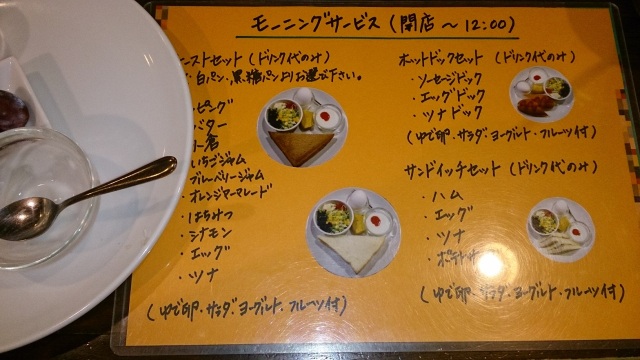 モーニングサービス (開店 ～ 12:00)
ーストセット (ドリンク代のみ)
白パン・黒糖パンよりお選び下さい。
ピング
バター
倉
いちごジャム
ブルーベリージャム
オレンジマーマレード
・はちみつ
・シナモン
・エッグ
・ツナ
(ゆで卵・サラダ・ヨーグルト・フルーツ付)
ホットドックセット (ドリンク代のみ)
・ソーセージドック
・エッグドック
・ツナドック
(ゆで卵・サラダ・ヨーグルト・フルーツ付)
サンドイッチセット (ドリンク代のみ)
・ハム
・エッグ
・ツナ
・ポテトサ
(ゆで卵・サラダ・ヨーグルト・フルーツ付)